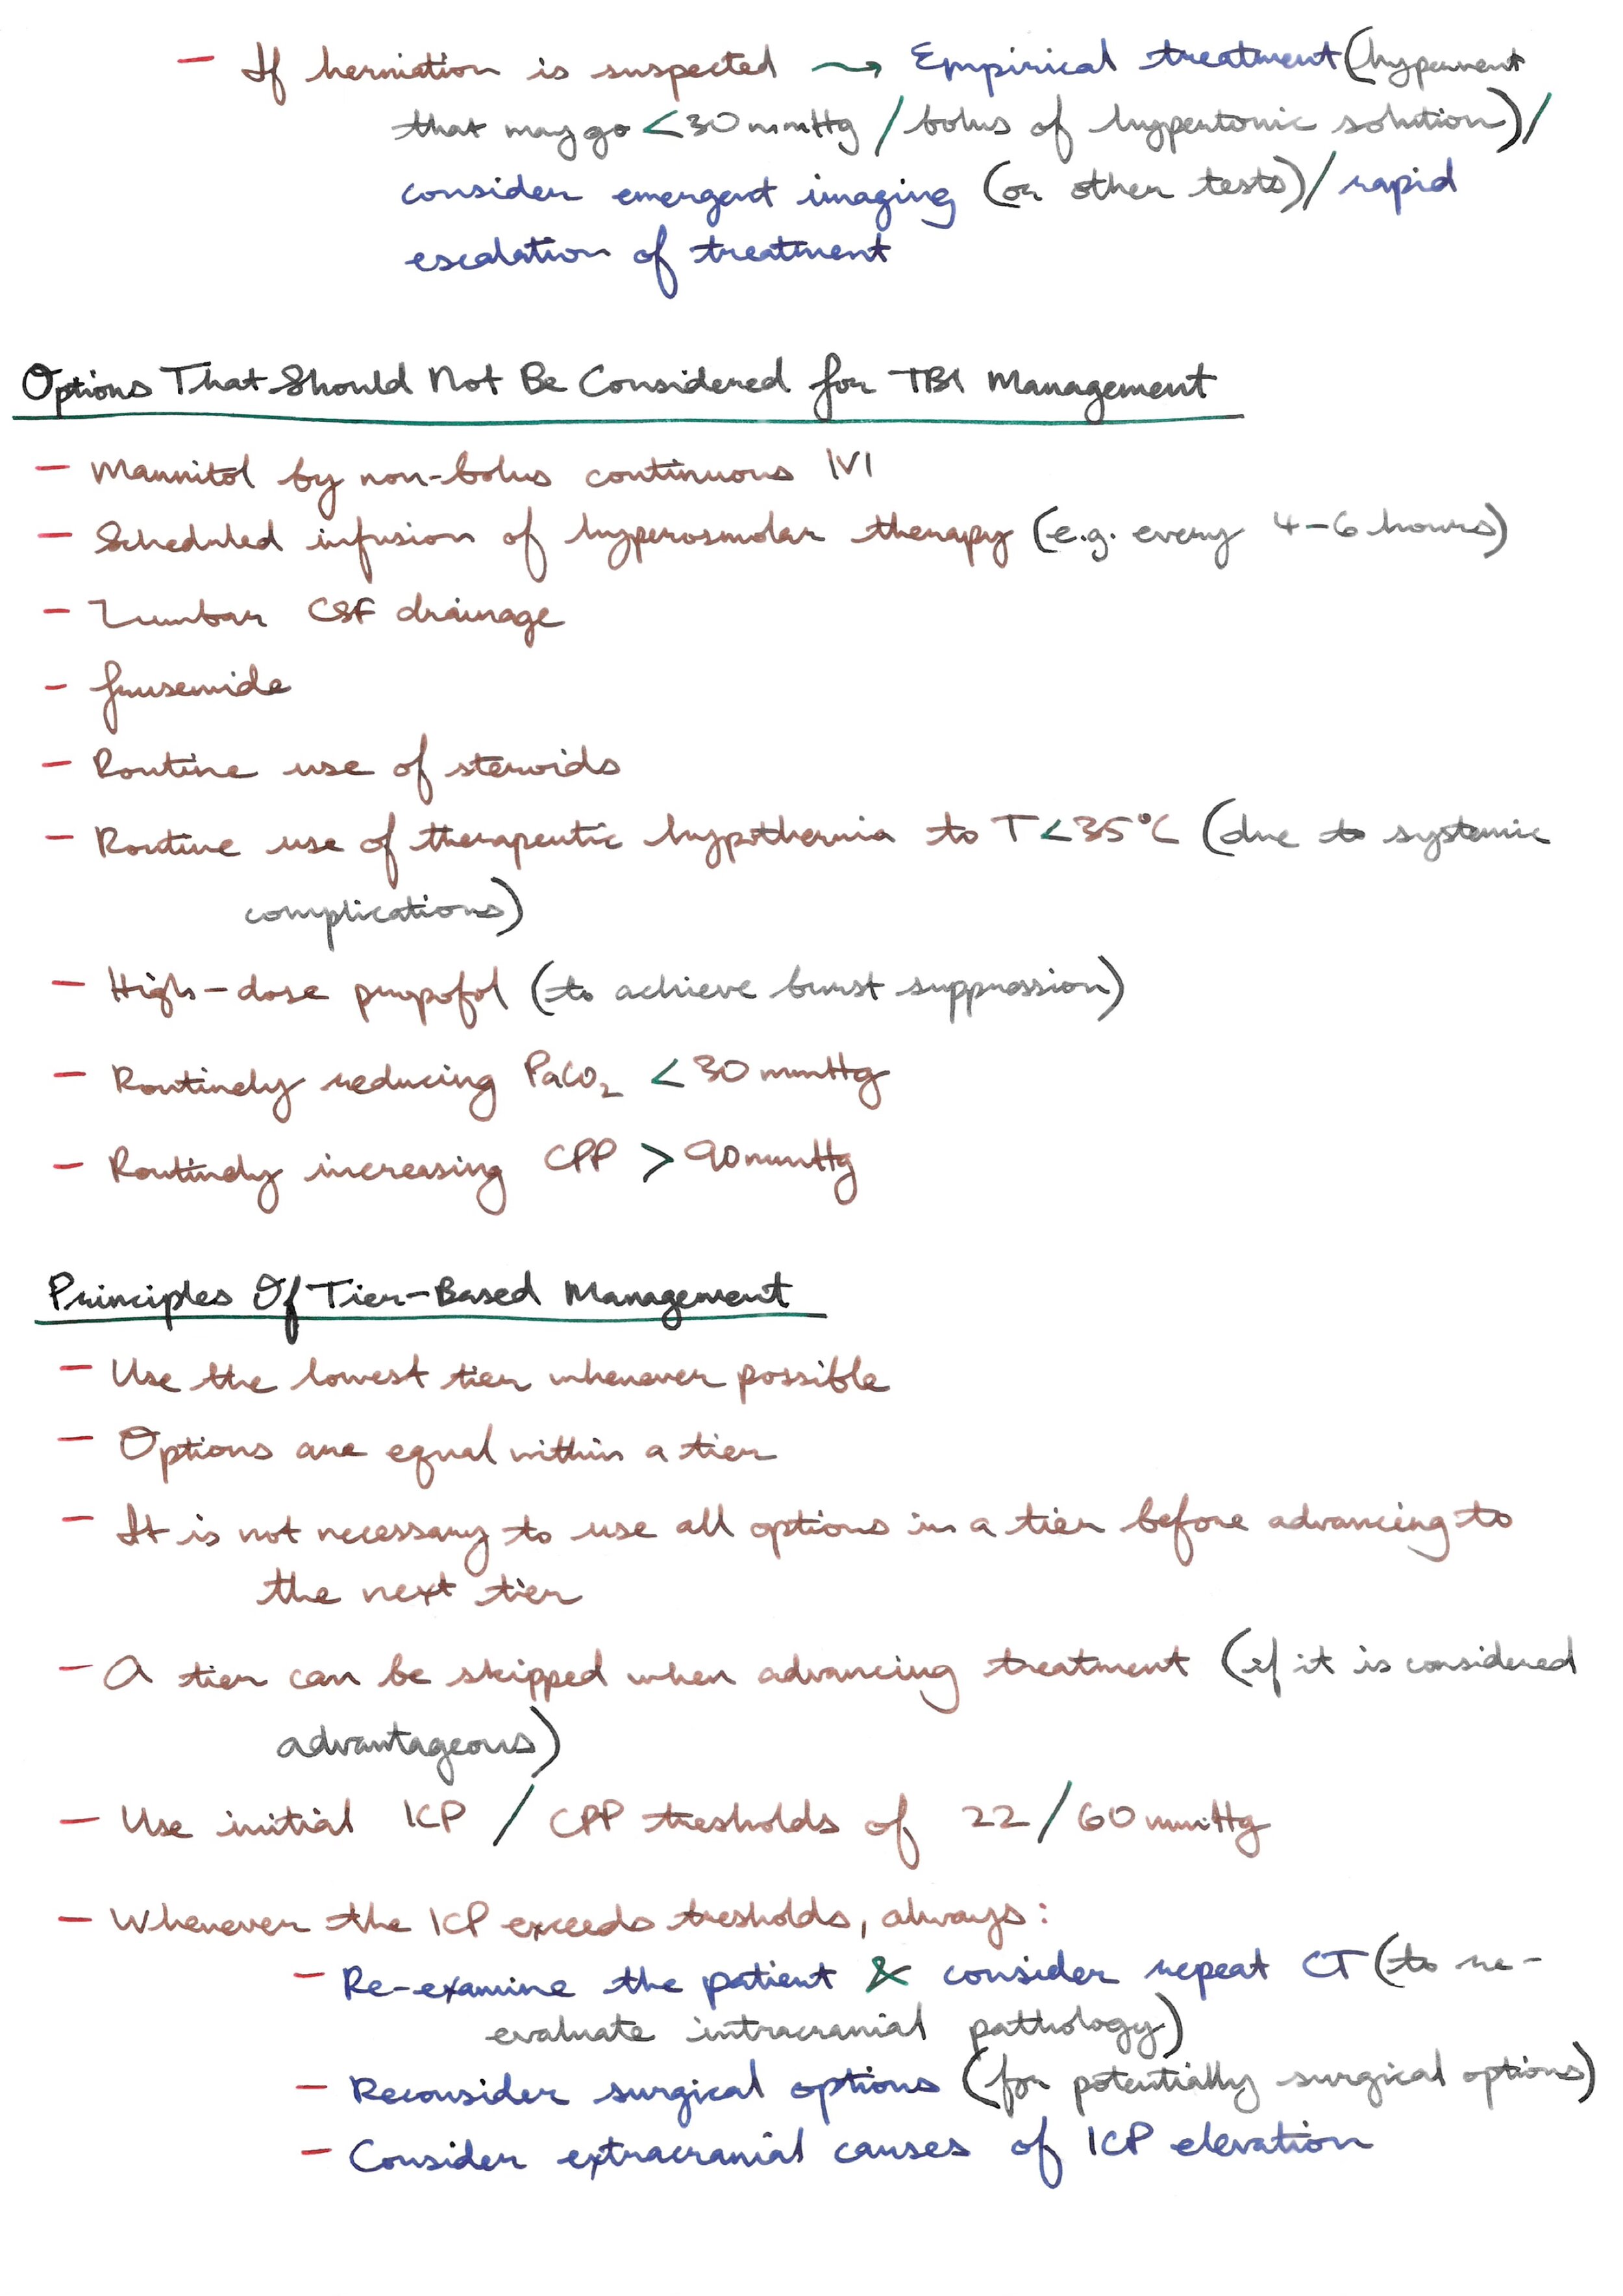 - If herniation is suspected → Empirical treatment (hypervent
that may go <30mmHg / bolus of hypertonic solution) /
consider emergent imaging (or other tests) / rapid
escalation of treatment
Options That Should Not Be Considered for TBI Management
- Mannitol by non-bolus continuous IVI
- Scheduled infusion of hyperosmolar therapy (e.g. every 4-6 hours)
- Lumbar CSF drainage
- furusemide
- Routine use of steroids
- Routine use of therapeutic hypothermia to T<35°C (due to systemic
complications)
- High-dose propofol (to achieve burst suppression)
- Routinely reducing PaCO₂ <30mmHg
- Routinely increasing CPP >90mmHg
Principles Of Tier-Based Management
- Use the lowest tier whenever possible
- Options are equal within a tier
- It is not necessary to use all options in a tier before advancing to
the next tier
- A tier can be skipped when advancing treatment (if it is considered
advantageous)
- Use initial ICP / CPP tresholds of 22/60mmHg
- Whenever the ICP exceeds tresholds, always:
- Re-examine the patient & consider repeat CT (to re-
evaluate intracranial pathology)
- Reconsider surgical options (for potentially surgical options)
- Consider extracranial causes of ICP elevation